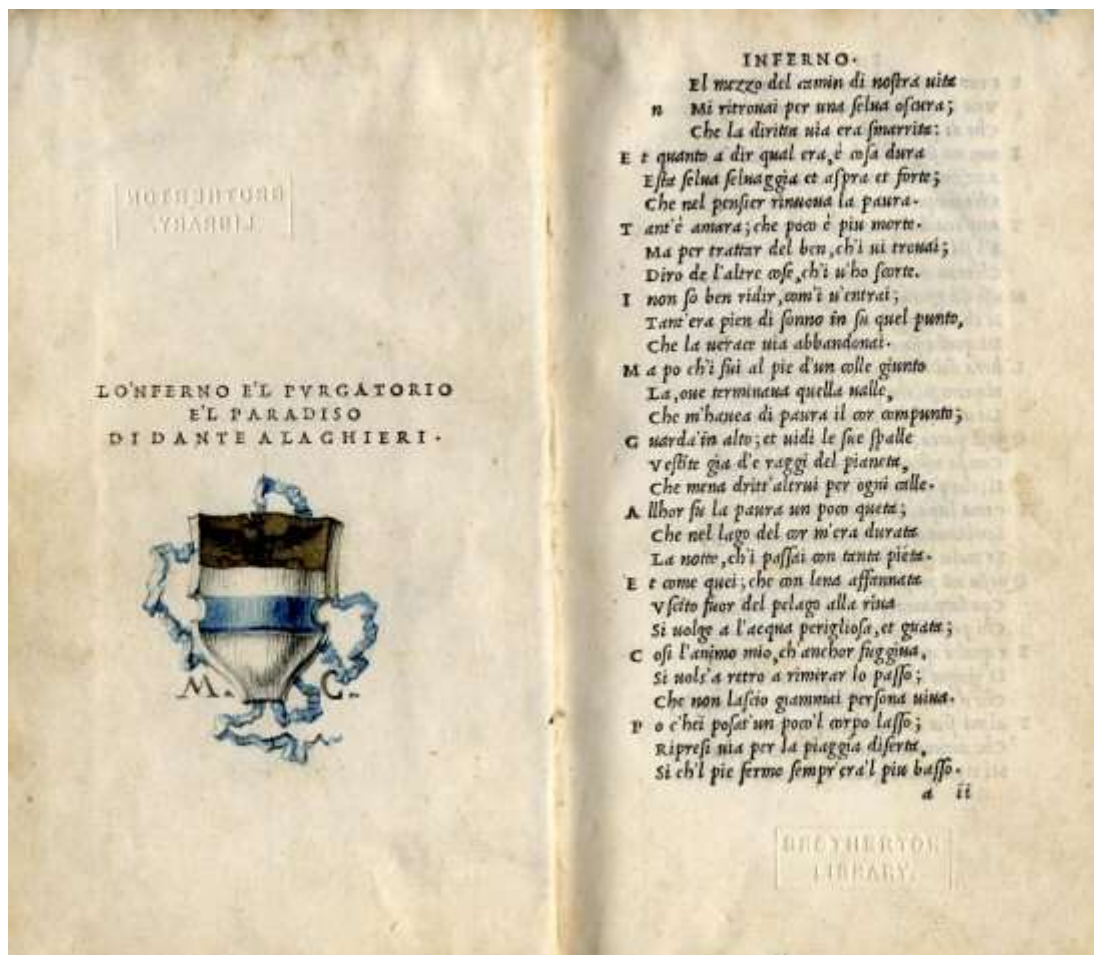 BROTHERTON
LIBRARY.
LO'NFERNO E'L PVRGATORIO
E'L PARADISO
DI DANTE ALAGHIERI.
M. C.
INFERNO.
El mezzo del camin di noſtra uita
n Mi ritrouai per una ſelua oſcura;
Che la diritta uia era ſmarrita:
E t quanto a dir qual era, è coſa dura
Eſta ſelua ſeluaggia et aſpra et forte;
Che nel penſier rinuoua la paura.
T ant'è amara; che poco è piu morte.
Ma per trattar del ben, ch'i ui trouai;
Diro de l'altre coſe, ch'i u'ho ſcorte.
I non ſo ben ridir, com'i u'entrai;
Tant'era pien di ſonno in ſu quel punto,
Che la uerace uia abbandonai.
M a po ch'i fui al pie d'un colle giunto
La, oue terminaua quella ualle,
Che m'hauea di paura il cor compunto;
G uarda'in alto; et uidi le ſue ſpalle
Veſtite gia d'e raggi del pianeta,
Che mena dritt'altrui per ogni calle.
A llhor fu la paura un poco queta;
Che nel lago del cor m'era durata
La notte, ch'i paſſai con tanta pièta.
E t come quei; che con lena affannata
Vſcito fuor del pelago alla riua
Si uolge a l'acqua periglioſa, et guata;
C oſi l'animo mio, ch'anchor fuggiua,
Si uolſ'a retro a rimirar lo paſſo;
Che non laſcio giammai perſona uiua.
P o c'hei poſat'un poco'l corpo laſſo;
Ripreſi uia per la piaggia diſerta,
Si ch'l pie fermo ſempr'era'l piu baſſo.
a ii
BROTHERTON
LIBRARY.